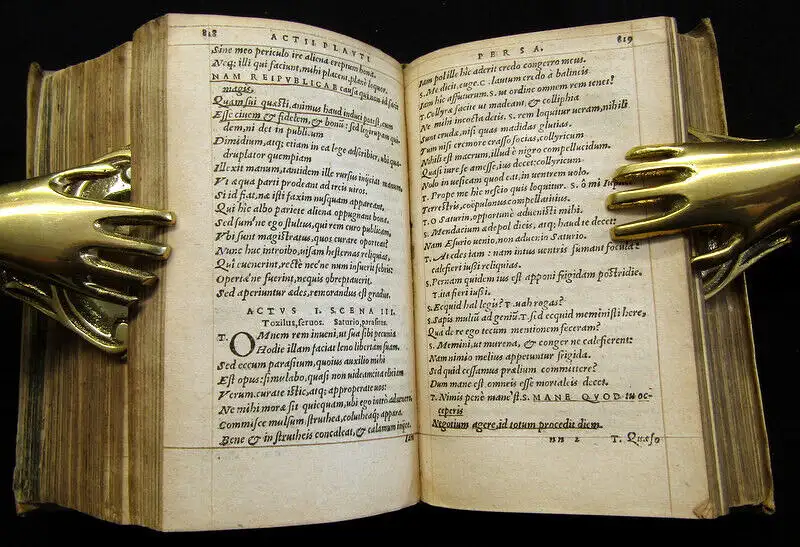 818
ACTII PLAVTI
Sine meo periculo ire aliena ereptum bona.
Neq; illi qui faciunt, mihi placent, planè loquor.
NAM REIPVBLICAE causa quisquam id facit
magis,
Quam sui quæsti, animus haud induci potest, eum
Esse ciuem & fidelem, & bonũ: sed legirupam qui
dem, ni det in publicum
Dimidium, atq; etiam in ea lege adscribier, ubi qua
druplator quempiam
Iniexit manum, tantidem ille rursus inijciat manum
Vt æqua parti prodeant ad treis uiros.
Si id fiat, næ isti faxim nusquam appareant,
Qui hic albo pariete aliena oppugnant bona.
Sed sum'ne ego stultus, qui rem curo publicam,
Vbi sunt magistratus, quos curare oporteat?
Nunc huc introibo, uisam hesternas reliquias,
Qui euenerint, rectè nec'ne num infuerit febris:
Operta'ne fuerint, nequis obreptauerit.
Sed aperiuntur ædes, remorandus est gradus.
ACTVS I. SCENA III.
Toxilus, seruos. Saturio, parasitus.
T. OMnem rem inueni, ut sua sibi pecunia
Hodie illam faciat leno libertam suam.
Sed eccum parasitum, quoius auxilio mihi
Est opus: simulabo, quasi non uideam: ita eliciam
Verum. curate istic, atq; approperate uos:
Ne mihi moræ sit quicquam, ubi ego intrò aduenero,
Commisce mulsum, struthea, coluteaq; appara.
Bene & in strutheis concaleat, & calamum inijce.
Iam
PERSA.
819
Iam pol ille hic aderit credo congerro meus.
S. Me dicit, euge. C. lautum credo à balineis
Iam hic affuturum. S. ut ordine omnem rem tenet?
T. Collyræ facite ut madeant, & colliphia
Ne mihi incocta detis. S. rem loquitur ueram, nihili
Sunt crudæ, nisi quas madidas glutias.
Tum nisi cremore crasso focias, collyricum
Nihili est macrum, illud è nigro compellucidum.
Quasi iure amesse, ius decet: collyricum
Nolo in uesicam quod eat, in uentrem uolo.
T. Prope me hic nescio quis loquitur. S. ô mi
Terrestris, coëpulonus compellatiuus.
T. O Saturio, opportunè aduenisti mihi.
S. Mendacium ædepol dicis, atq; haud te decet:
Nam Esurio uenio, non aduenio Saturio.
T. At edes iam: nam intus uentris fumant focula:
calefieri iußi reliquias.
S. Pernam quidem ius est apponi frigidam postridie.
T. ita fieri iußi.
S. Ecquid hal legis? T. uah rogas?
S. Sapis multũ ad geniũ. T. sed ecquid meministi here,
Qua de re ego tecum mentionem feceram?
S. Memini, ut murena, & conger ne calefierent:
Nam nimio melius appetuntur frigida.
Sed quid cessamus prælium committere?
Dum mane est omneis esse mortaleis decet.
T. Nimis penè mane'st. S. MANE QVOD tu oc-
ceperis
Negotium agere, id totum procedit diem.
nn 2
T. Quæso